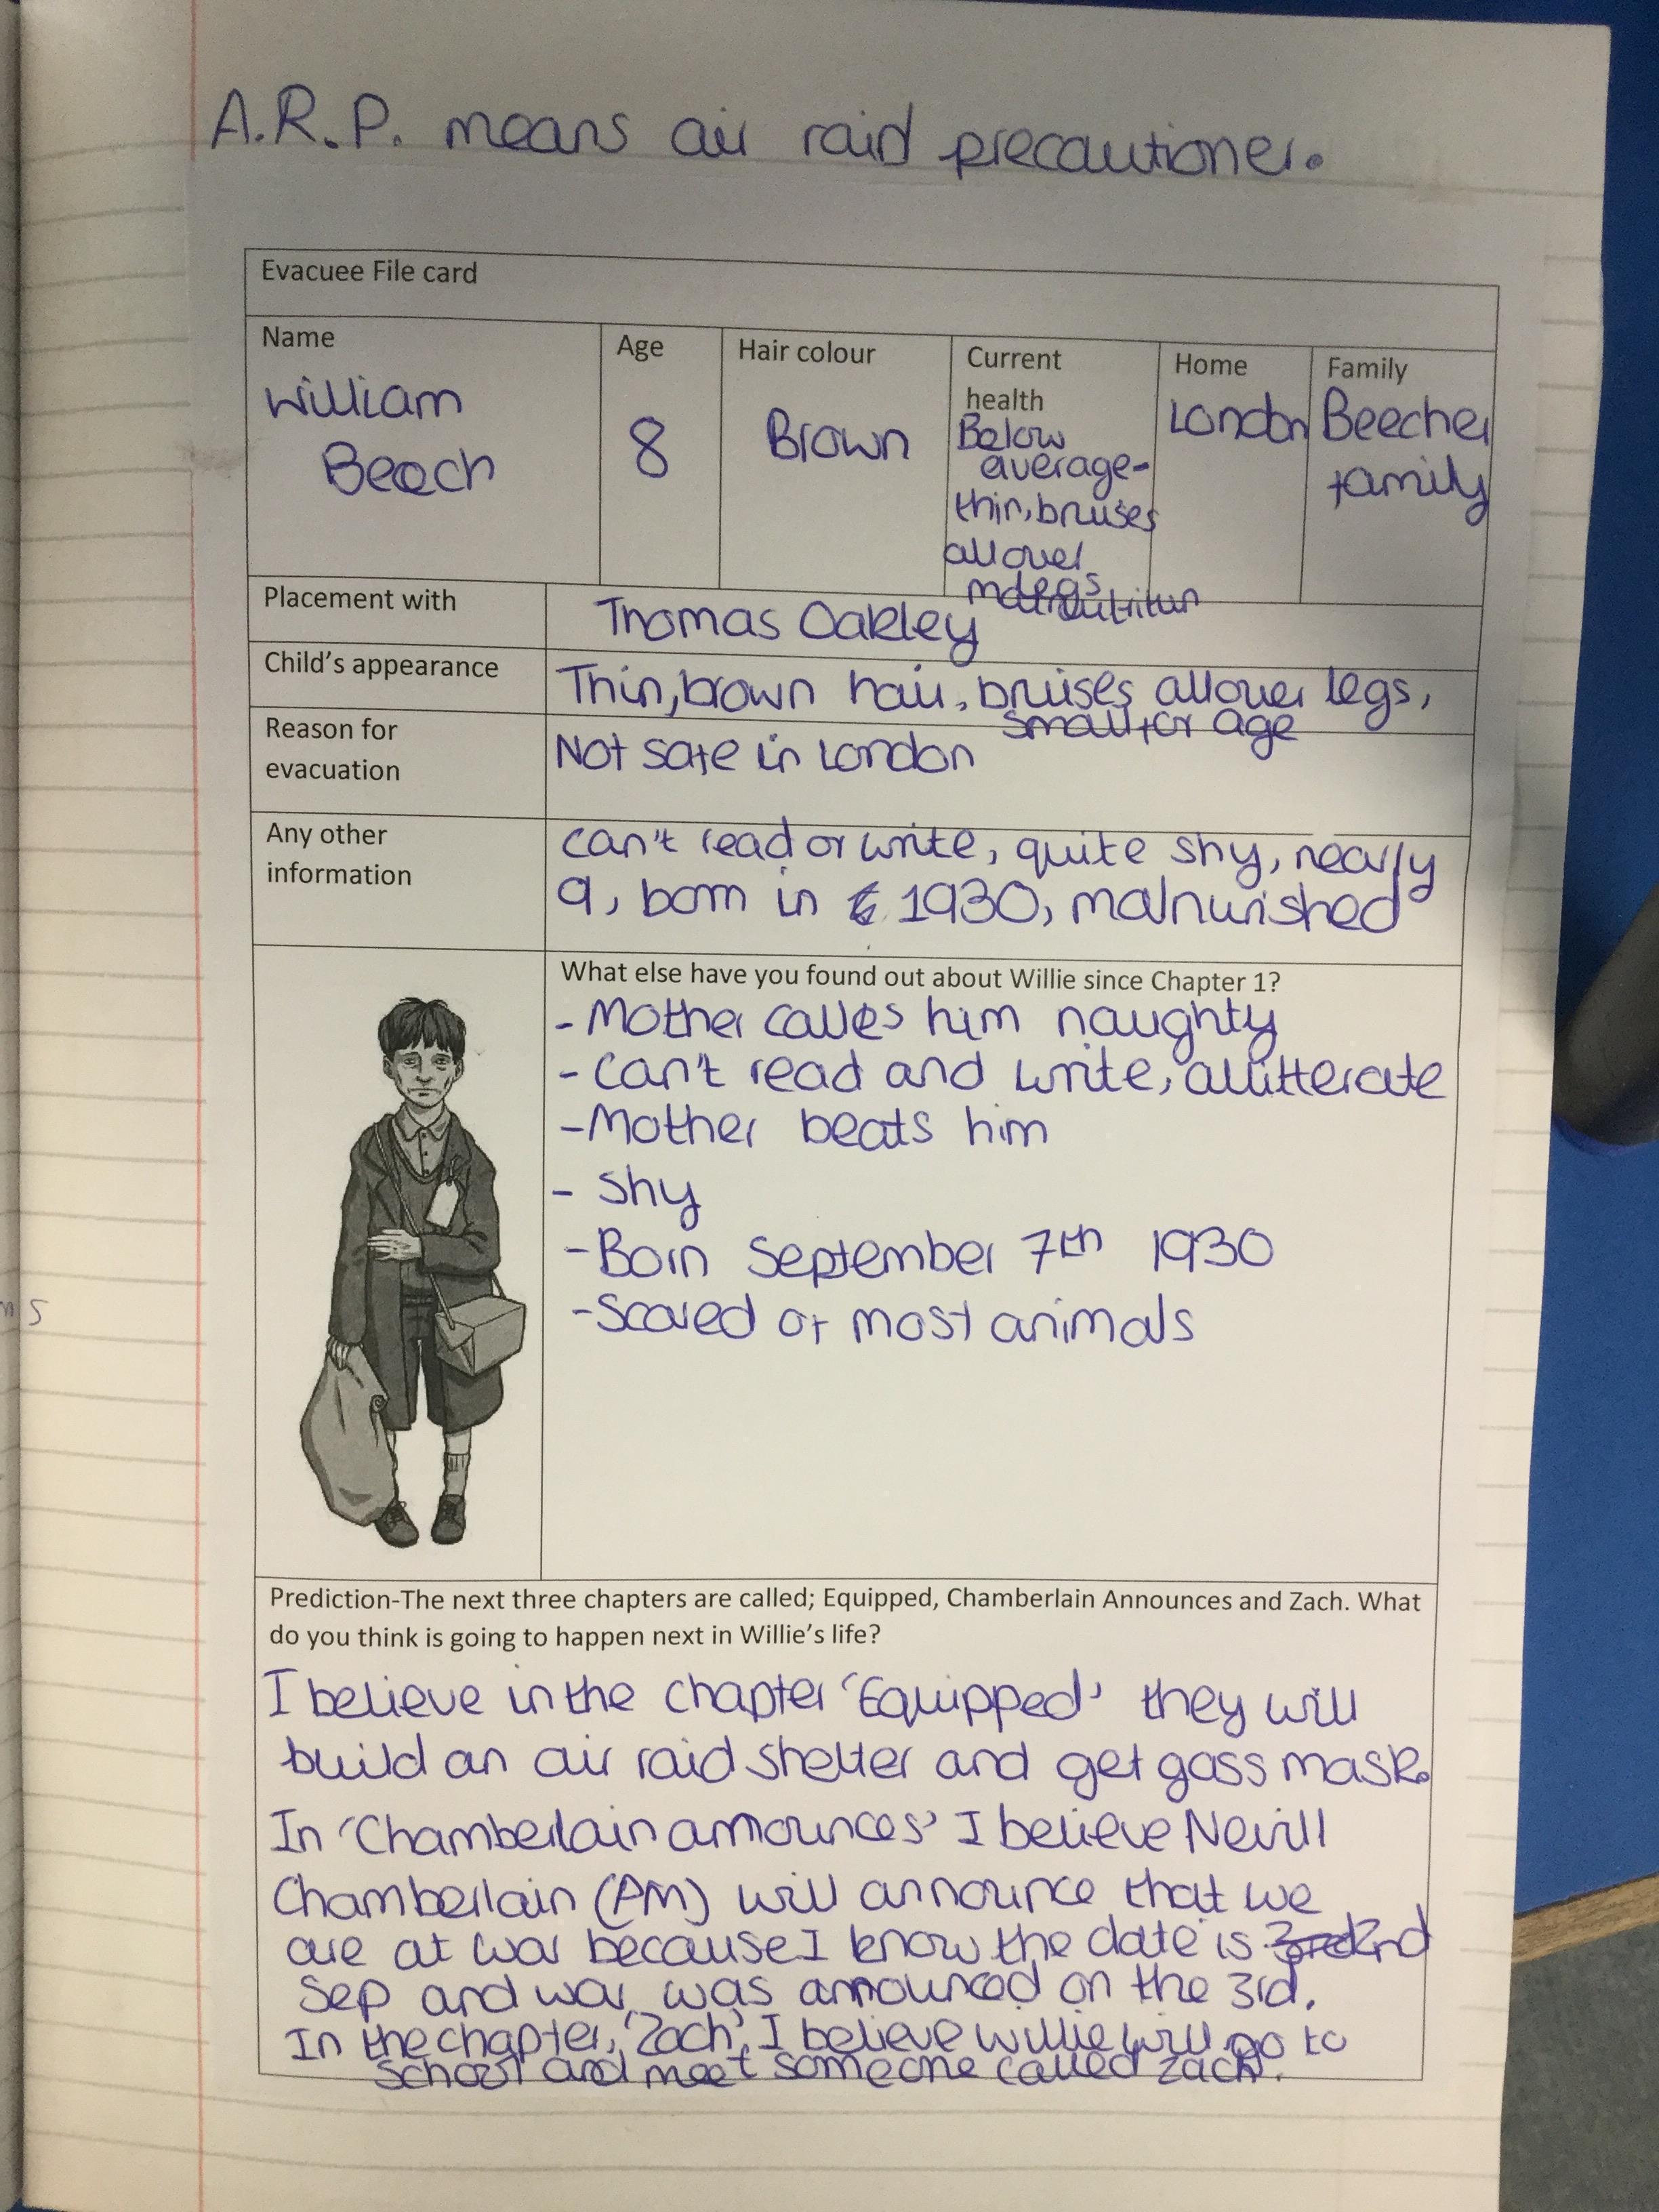 A.R.P. means air raid precautioner.
Evacuee File card
Name
William
Beach
Age
8
Hair colour
Brown
Current
health
Below
average-
thin, bruises
all over
legs
malnutritun
Home
London
Family
Beecher
family
Placement with
Thomas Oakley
Child's appearance
Thin, brown hair, bruises all over legs,
small for age
Reason for
evacuation
Not safe in London
Any other
information
can't read or write, quite shy, nearly
9, born in 1930, malnurished
What else have you found out about Willie since Chapter 1?
- Mother calles him naughty
- can't read and write, allitterate
- Mother beats him
- shy
- Born September 7th 1930
- Scared of most animals
Prediction-The next three chapters are called; Equipped, Chamberlain Announces and Zach. What
do you think is going to happen next in Willie's life?
I believe in the chapter 'Equipped' they will
build an air raid shelter and get gass mask.
In 'Chamberlain announces' I believe Nevill
Chamberlain (PM) will announce that we
are at war because I know the date is 2nd
Sep and war was announced on the 3rd.
In the chapter, 'Zach', I believe willie will go to
school and meet someone called zach.